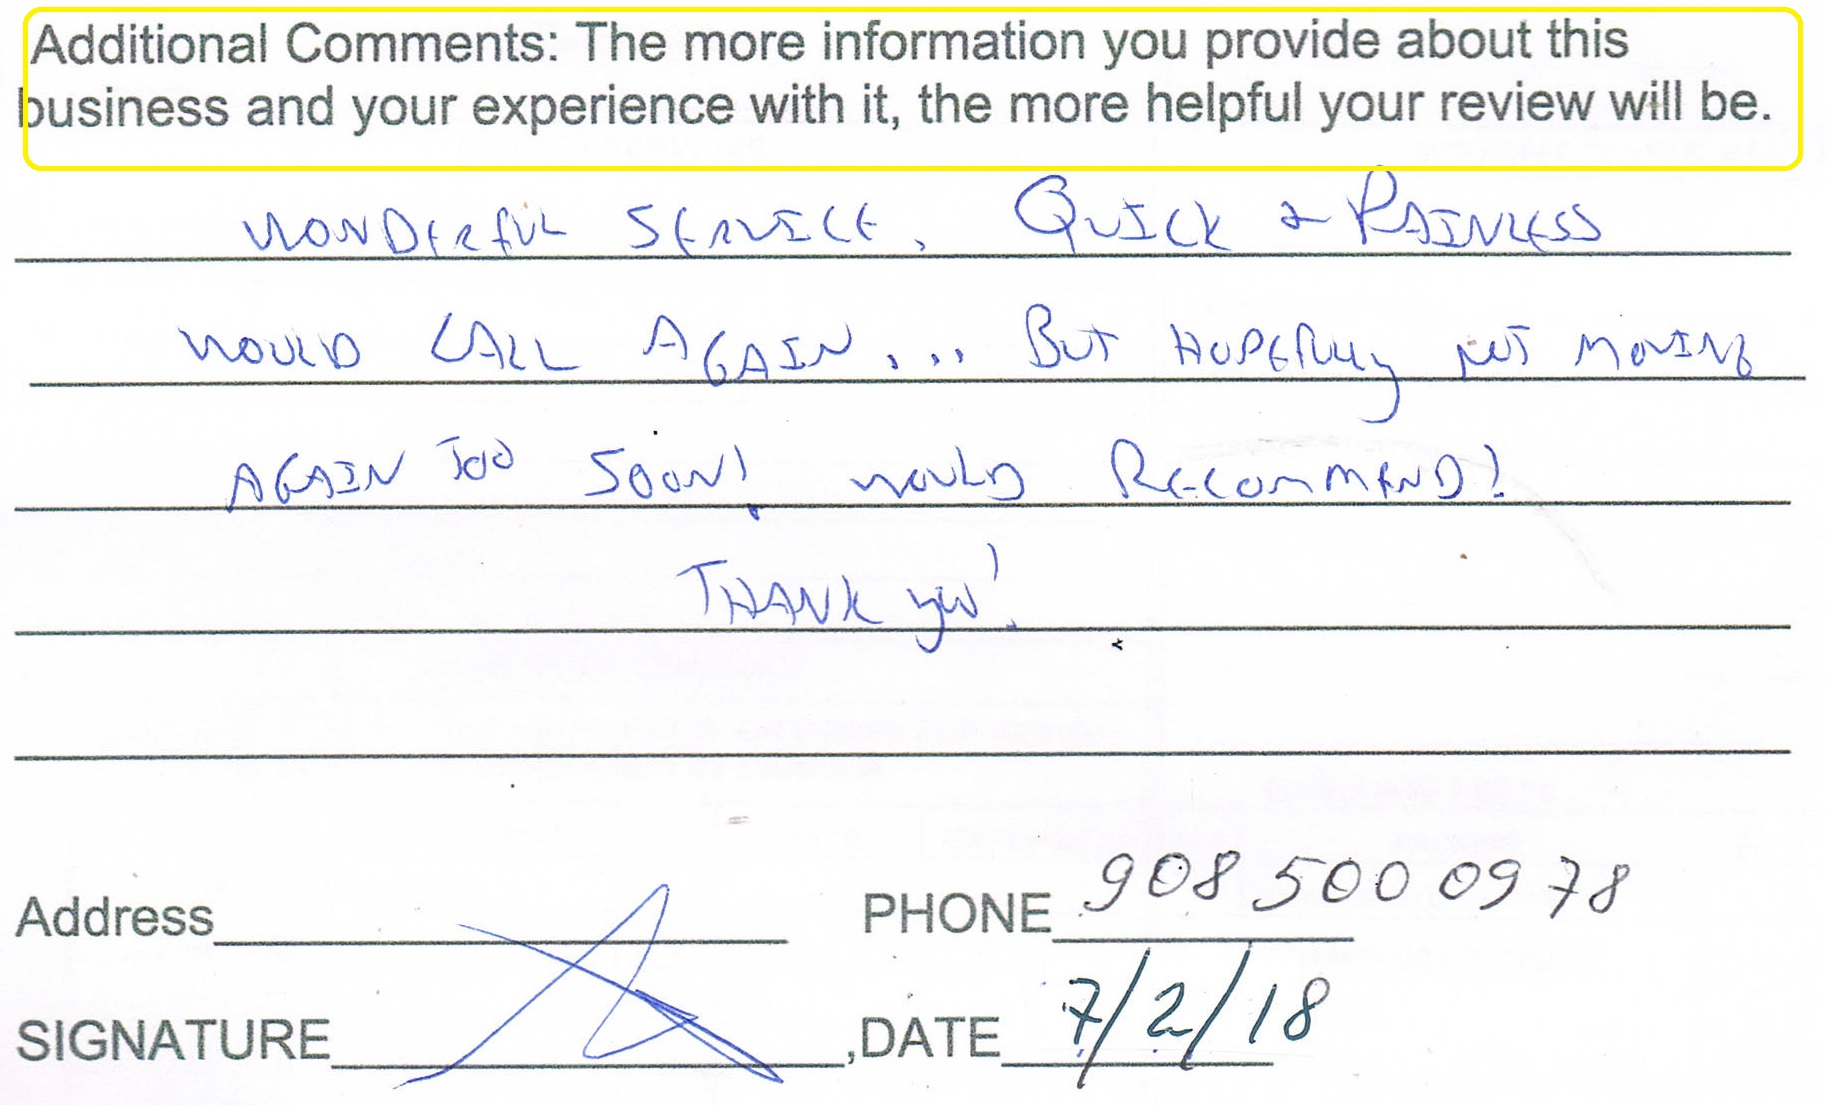 Additional Comments: The more information you provide about this
business and your experience with it, the more helpful your review will be.
WONDERFUL SERVICE. QUICK & PAINLESS
WOULD CALL AGAIN... BUT HOPEFULLY NOT MOVING
AGAIN TOO SOON! WOULD RECOMMEND!
THANK you!
Address PHONE 908 500 0978
SIGNATURE ,DATE 7/2/18